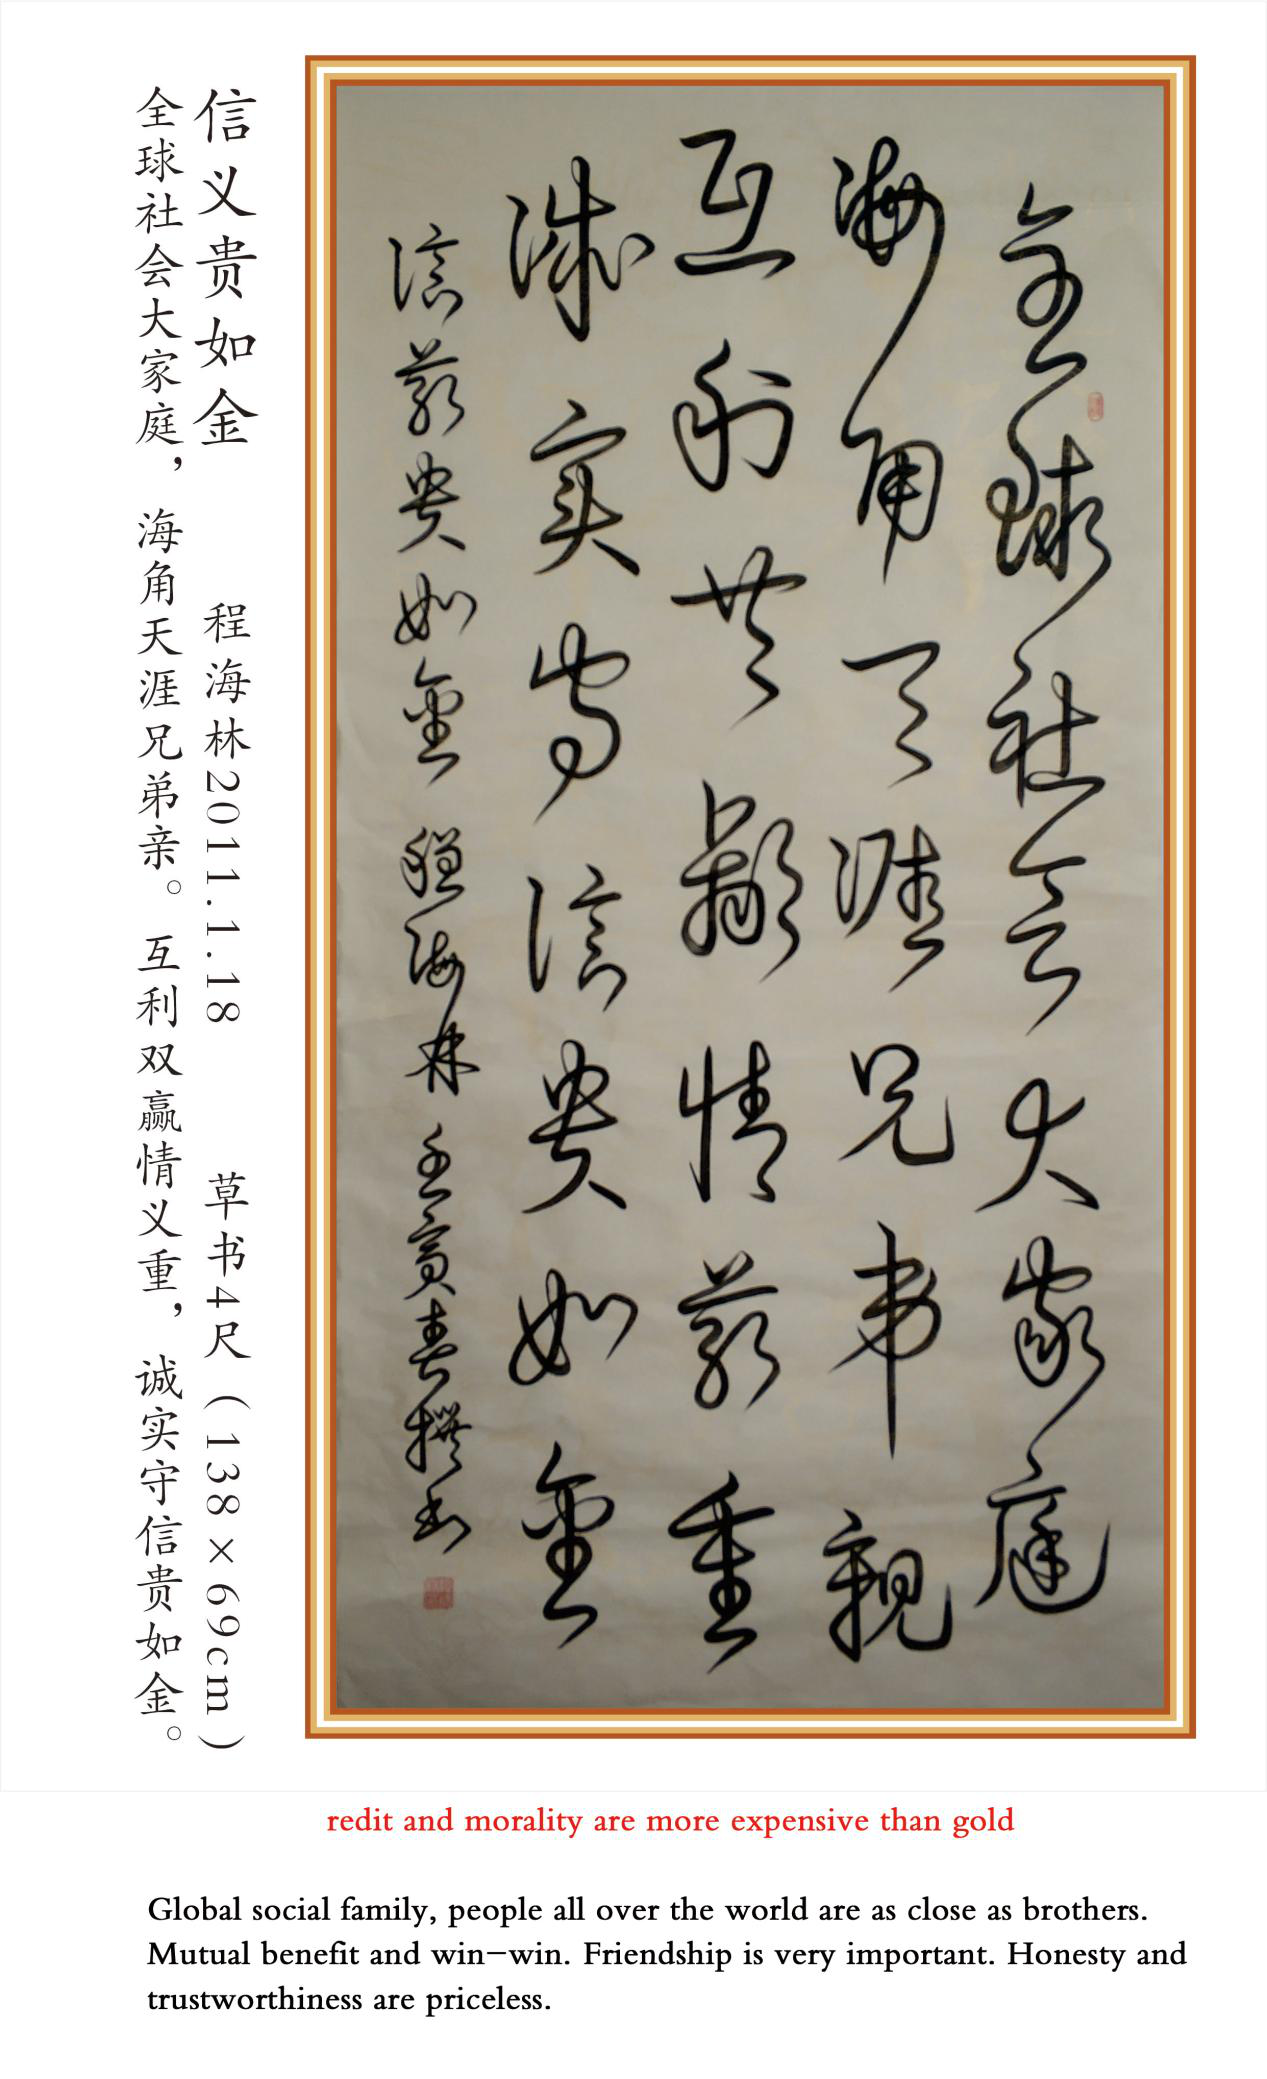 全球社会大家庭
海角天涯兄弟親
互利共赢情義重
誠实守信貴如金
信義貴如金 程海林 壬寅春撰书
信义贵如金 程海林2011.1.18 草书4尺（138×69cm）
全球社会大家庭，海角天涯兄弟亲。互利双赢情义重，诚实守信贵如金。
redit and morality are more expensive than gold
Global social family, people all over the world are as close as brothers.
Mutual benefit and win-win. Friendship is very important. Honesty and
trustworthiness are priceless.